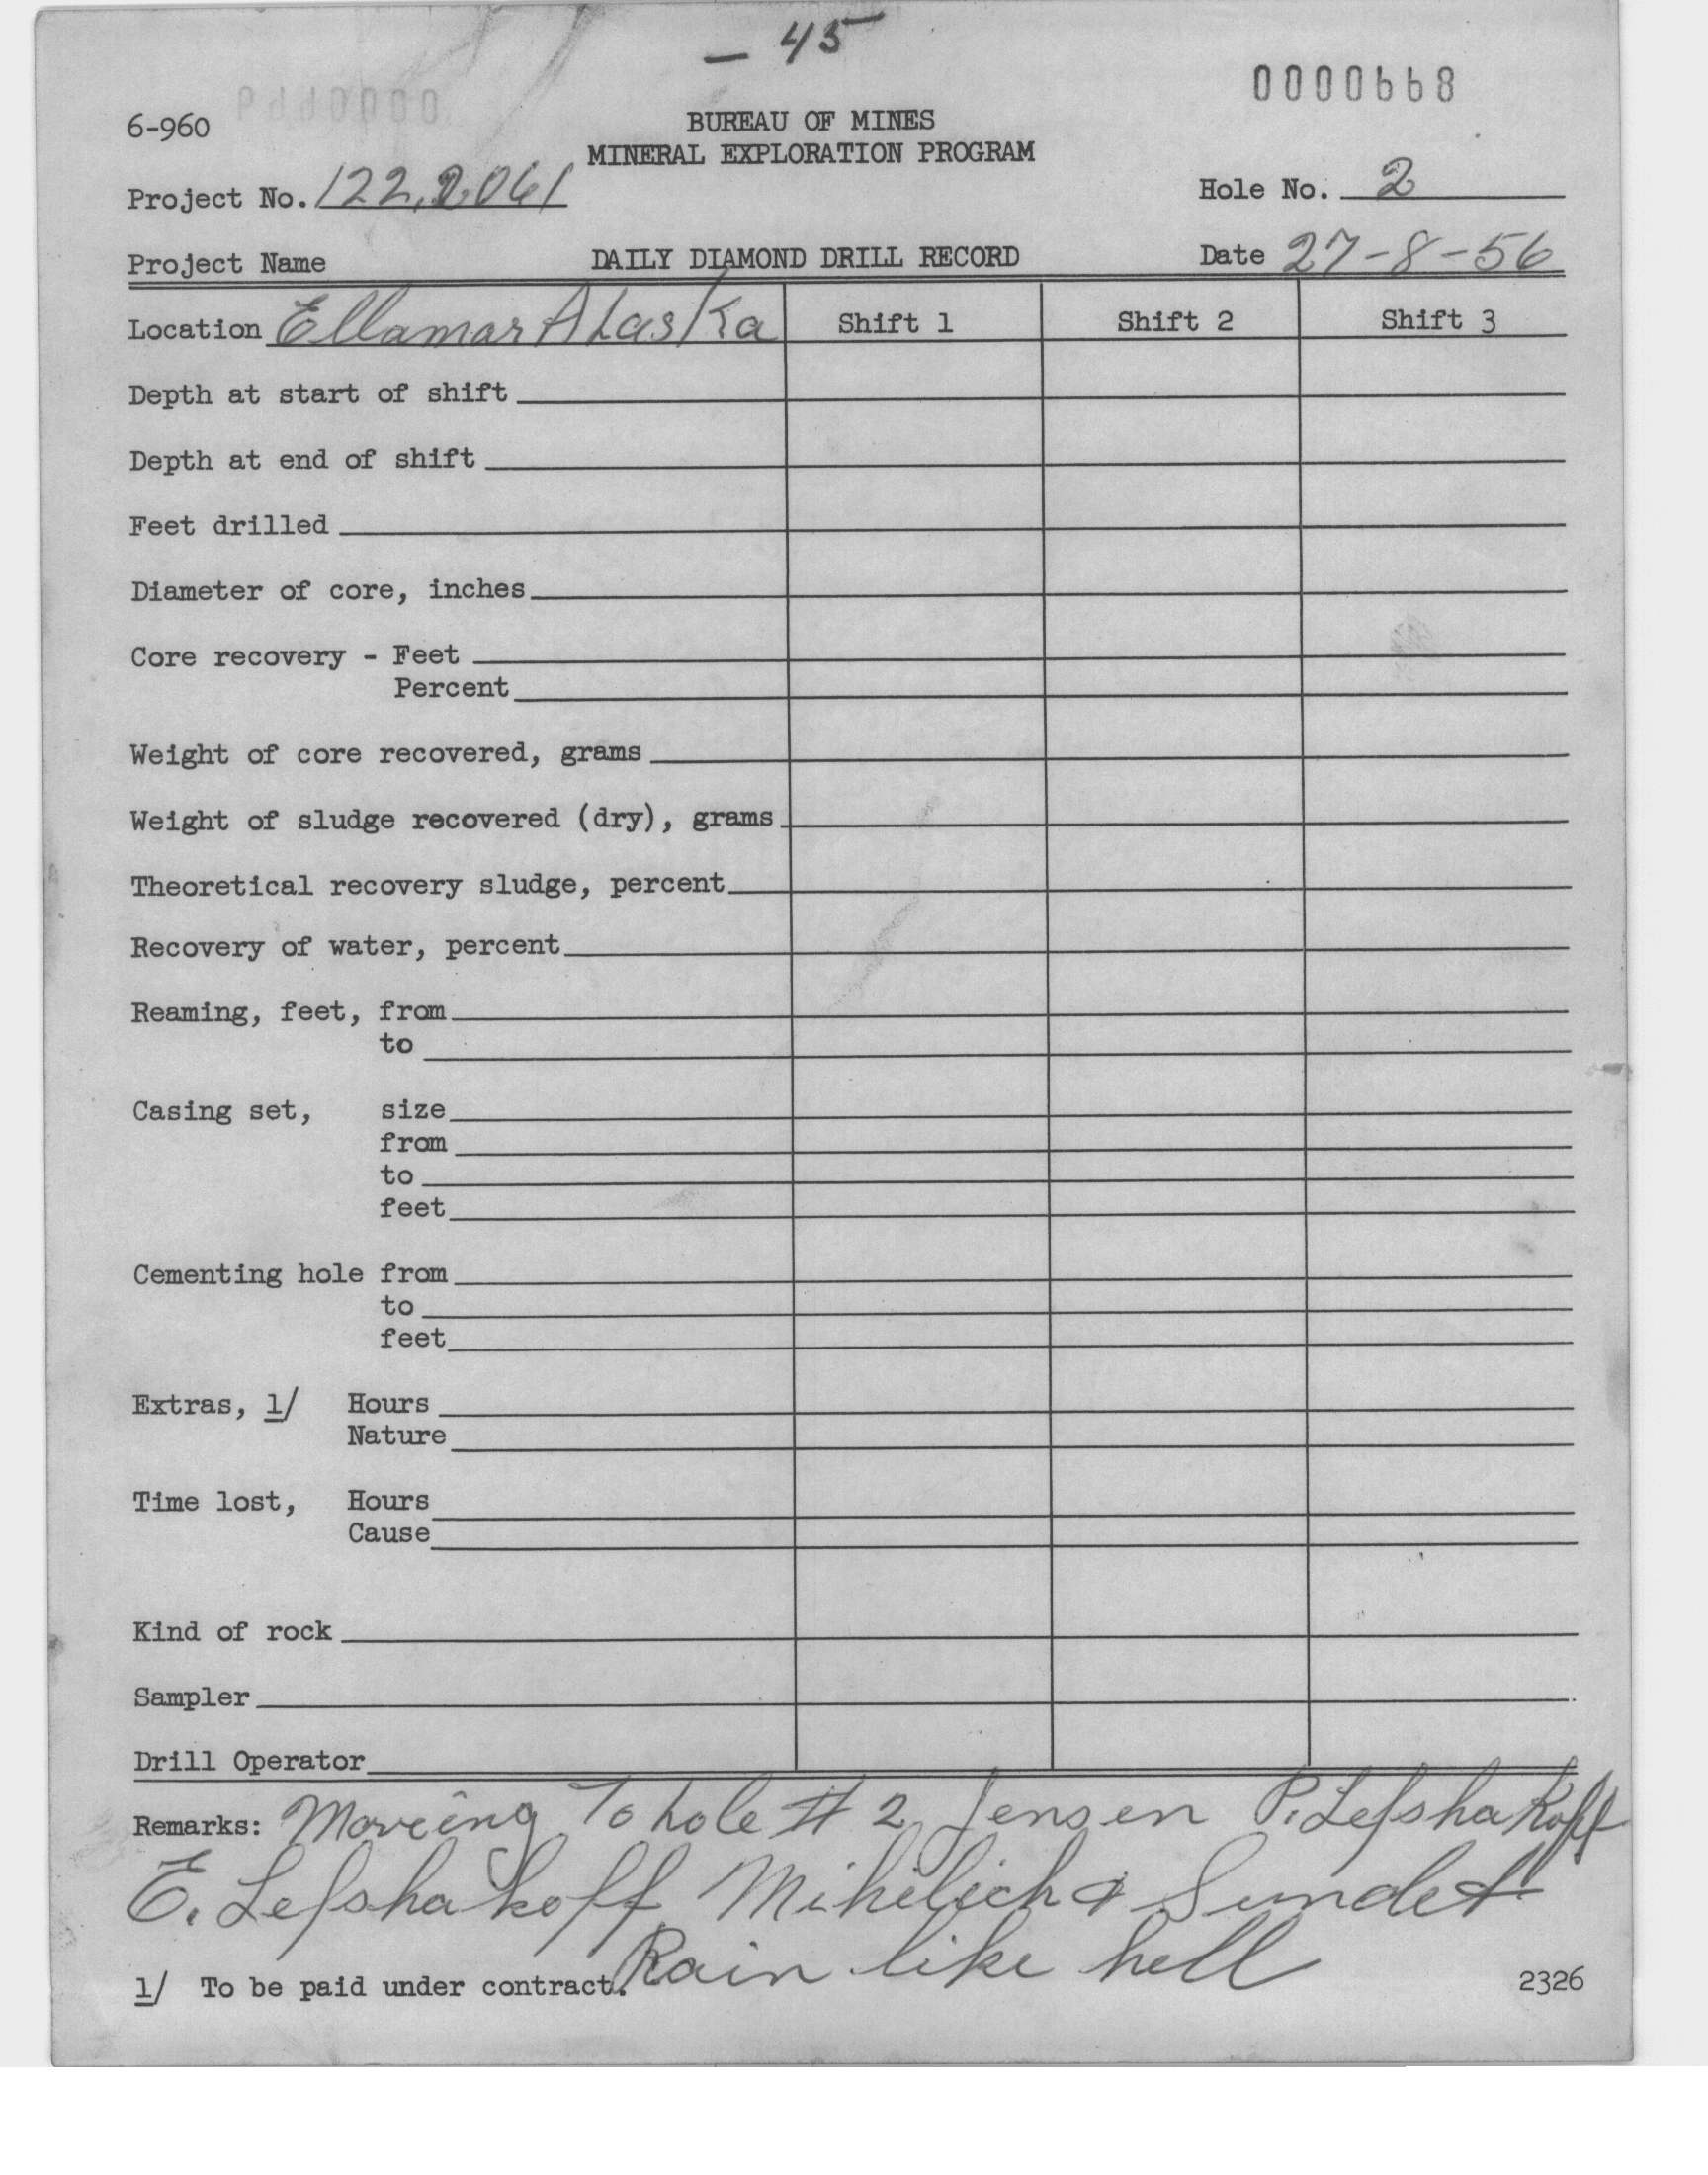 - 45
0000668
6-960
BUREAU OF MINES
MINERAL EXPLORATION PROGRAM
Project No. 122.2061
Hole No. 2
Project Name
DAILY DIAMOND DRILL RECORD
Date 27-8-56
Location Ellamar ALasKa Shift 1 Shift 2 Shift 3
Depth at start of shift
Depth at end of shift
Feet drilled
Diameter of core, inches
Core recovery - Feet
Percent
Weight of core recovered, grams
Weight of sludge recovered (dry), grams
Theoretical recovery sludge, percent
Recovery of water, percent
Reaming, feet, from
to
Casing set, size
from
to
feet
Cementing hole from
to
feet
Extras, 1/ Hours
Nature
Time lost, Hours
Cause
Kind of rock
Sampler
Drill Operator
Remarks: Moveing To hole # 2 Jensen P. Lefshakoff
E. Lefshakoff Mihelich & Sundet
Rain like hell
1/ To be paid under contract.
2326